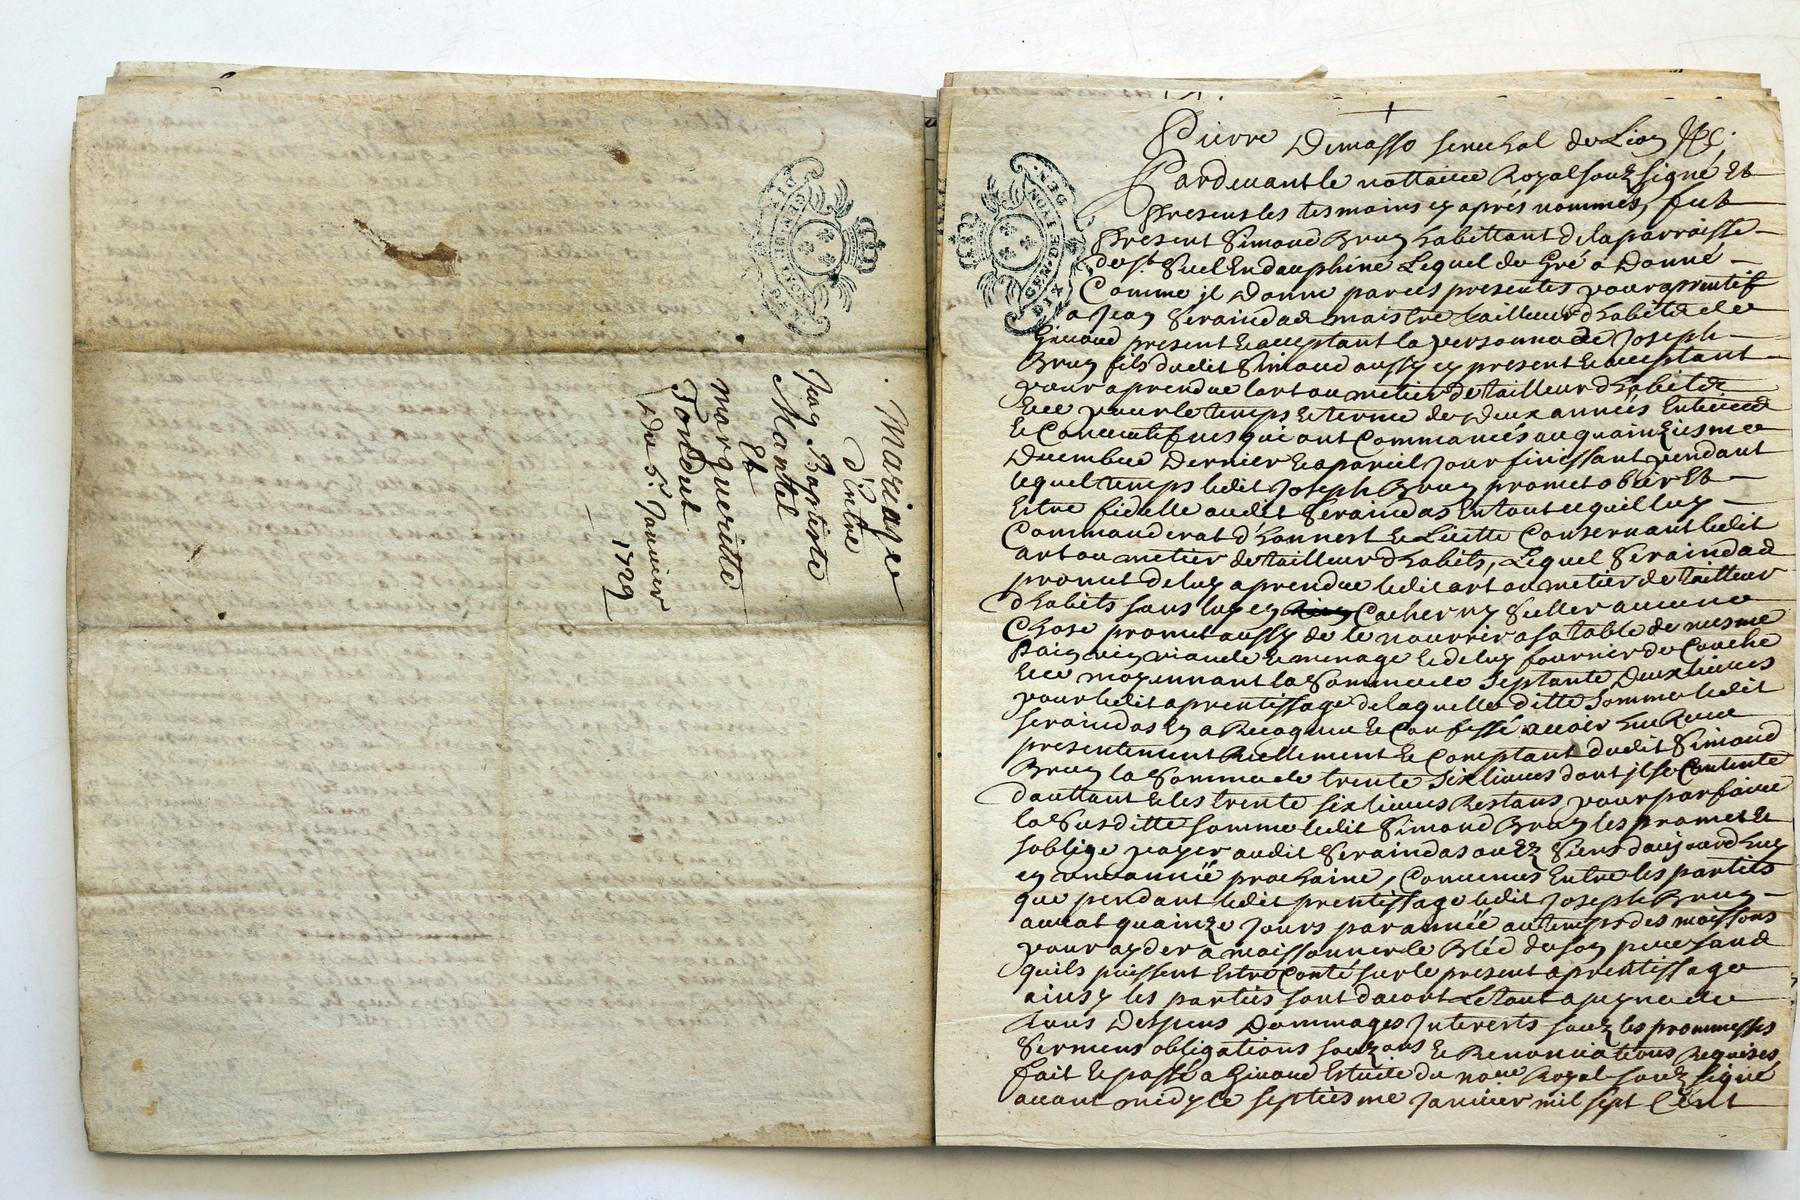 Mariage
d'Entre
Jean Baptiste
Mantel
Et
Margueritte
Tondut
du 5e. Janvier
1729
GEN. DE LYON
DIX DEN
Pierre Demasso senechal de Lion &c.
Pardevant le nottaire Royal souz signé Et
presens les tesmoins cy aprés nommés, fut
present Simond Brun habittant de la parroisse
de st. Suel En dauphiné Lequel de Gré a Donné
Comme il donne par ces presentes pour aprentif
a Jean Seraindas maistre tailleur d'habits de
Givaud present Et aceptant la personne de Joseph
Brun fils dudit Simond aussy cy present Et aceptant
pour aprendre l'art ou metier de tailleur d'habits
Et ce pour le temps Et terme de deux années Entieres
Et Consecutives qui ont Commancés au quainziesme
Decembre Dernier Et a pareil jour finissant pendant
lequel temps ledit Joseph Brun promet obeir Et
Estre fidelle audit Seraindas En tout ce quil luy
Commanderat d'honnest Et Licitte Consernant ledit
art ou metier de tailleur d'habits, Lequel Seraindas
promet de luy aprendre ledit art ou metier de tailleur
d'habits sans luy en Cacher ny Seller aucune
Chose promet aussy de le nourrir a sa table de mesme
pain vin viande Et menage Et de luy fournir de Couche
Et ce moyennant la Somme de Septante Deux livres
pour ledit aprentissage de laquelle ditte Somme ledit
Seraindas En a Recognu Et Confessé avoir Eu Receu
presentement Reellement Et Comptant dudit Simond
Brun la Somme de trente Six livres dont il se Contente
dauttant Et les trente six livres Restans pour parfaire
la Susditte somme ledit Simond Brun les promet Et
s'oblige payer audit Seraindas ou Ez Siens daujourd'huy
en une année prochaine, Convenus Entre les parties
que pendant ledit prentissage ledit Joseph Brun
aurat quainze Jours par année au temps des moissons
pour ayder a moissonner le Bléd de son pere sans
quils puissent Estre Conté sur le present aprentissage
ainsy les parties sont dacort Le tout a peyne de
tous Despens Dommages Interests souz les prommesses
Sermens obligations souz Et Renonciations Requises
fait Et passé a Givaud Estude du nore. Royal souz signé
avant midy le septiesme Janvier mil sept Cent